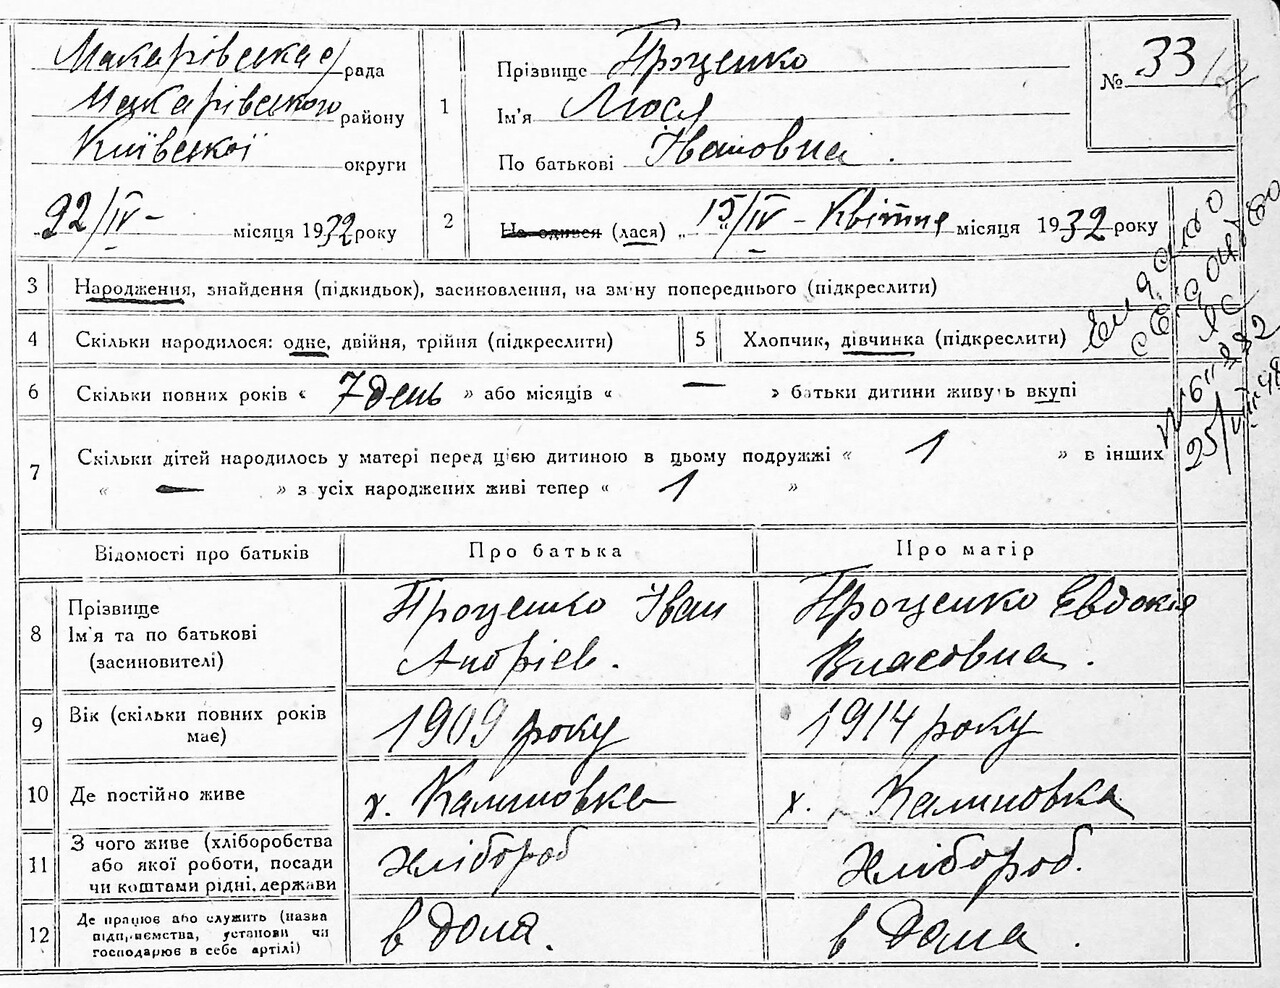 Макарівська с/рада
Макарівського району
Київської округи
22/IV- місяця 1932 року
1 Прізвище Проценко
Ім'я Люся
По батькові Івановна.
№ 33
2 На одився (лася) „ 15/IV - Квітня місяця 1932 року
3 Народження, знайдення (підкидьок), засиновлення, на зміну попереднього (підкреслити)
4 Скільки народилося: одне, двійня, трійня (підкреслити)
5 Хлопчик, дівчинка (підкреслити)
6 Скільки повних років « 7 день » або місяців « — » батьки дитини живуть вкупі
7 Скільки дітей народилось у матері перед цією дитиною в цьому подружжі « 1 » в інших
« — » з усіх народжених живі тепер « 1 »
Відомості про батьків Про батька Про матір
8 Прізвище
Ім'я та по батькові
(засиновителі)
Проценко Іван
Андріев.
Проценко Євдокія
Власовна.
9 Вік (скільки повних років
має)
1909 року
1914 року
10 Де постійно живе х. Калиновка х. Калиновка
11 З чого живе (хліборобства
або якої роботи, посади
чи коштами рідні, держави
хлібороб хлібороб.
12 Де працює або служить (назва
підприємства, установи чи
господарює в себе артілі)
в дома. в дома.
25/VIII-48